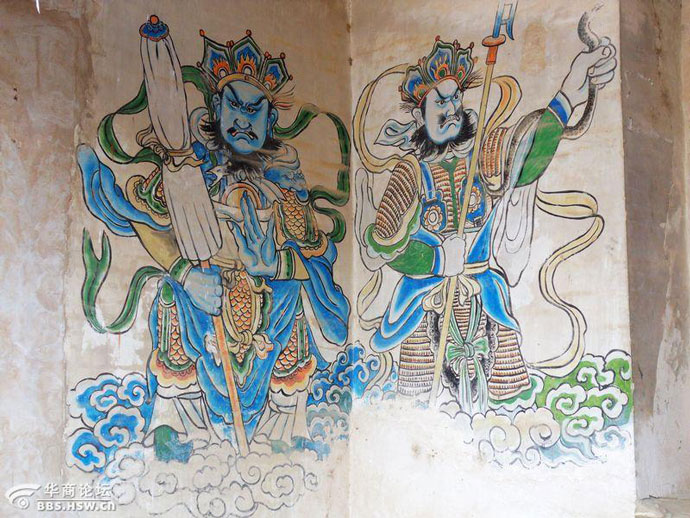 华商论坛
BBS.HSW.cn